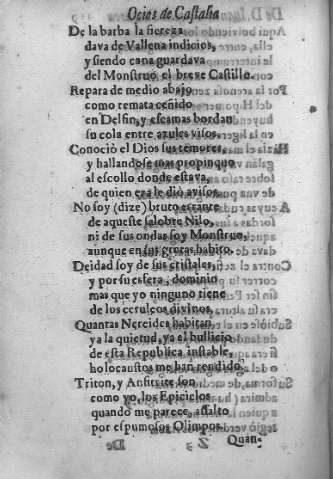 Ocios de Castalia
De la barba la fiereza
dava de Vallena indicios,
y siendo cana guardava
del Monstruo, el breve Castillo.
Repara de medio abajo
como remata ceñido
en Delfin, y escamas bordan
su cola entre azules visos.
Conociò el Dios sus temores,
y hallandose mas propinquo
al escollo donde estava,
de quien era le diò avisos.
No soy (dize) bruto errante
de aqueste salobre Nilo,
ni de sus ondas soy Monstruo,
aunque en sus grutas habito.
Deidad soy de sus cristales,
y por su esfera, dominio
mas que yo ninguno tiene
de los ceruleos divinos.
Quantas Nereides habitan
ya la quietud, ya el bullicio
de esta Republica instable,
holocaustos me han rendido.
Triton, y Anfitrite son
como yo, los Epiciclos
quando me parece, assalto
por espumosos Olimpos.
Quan-